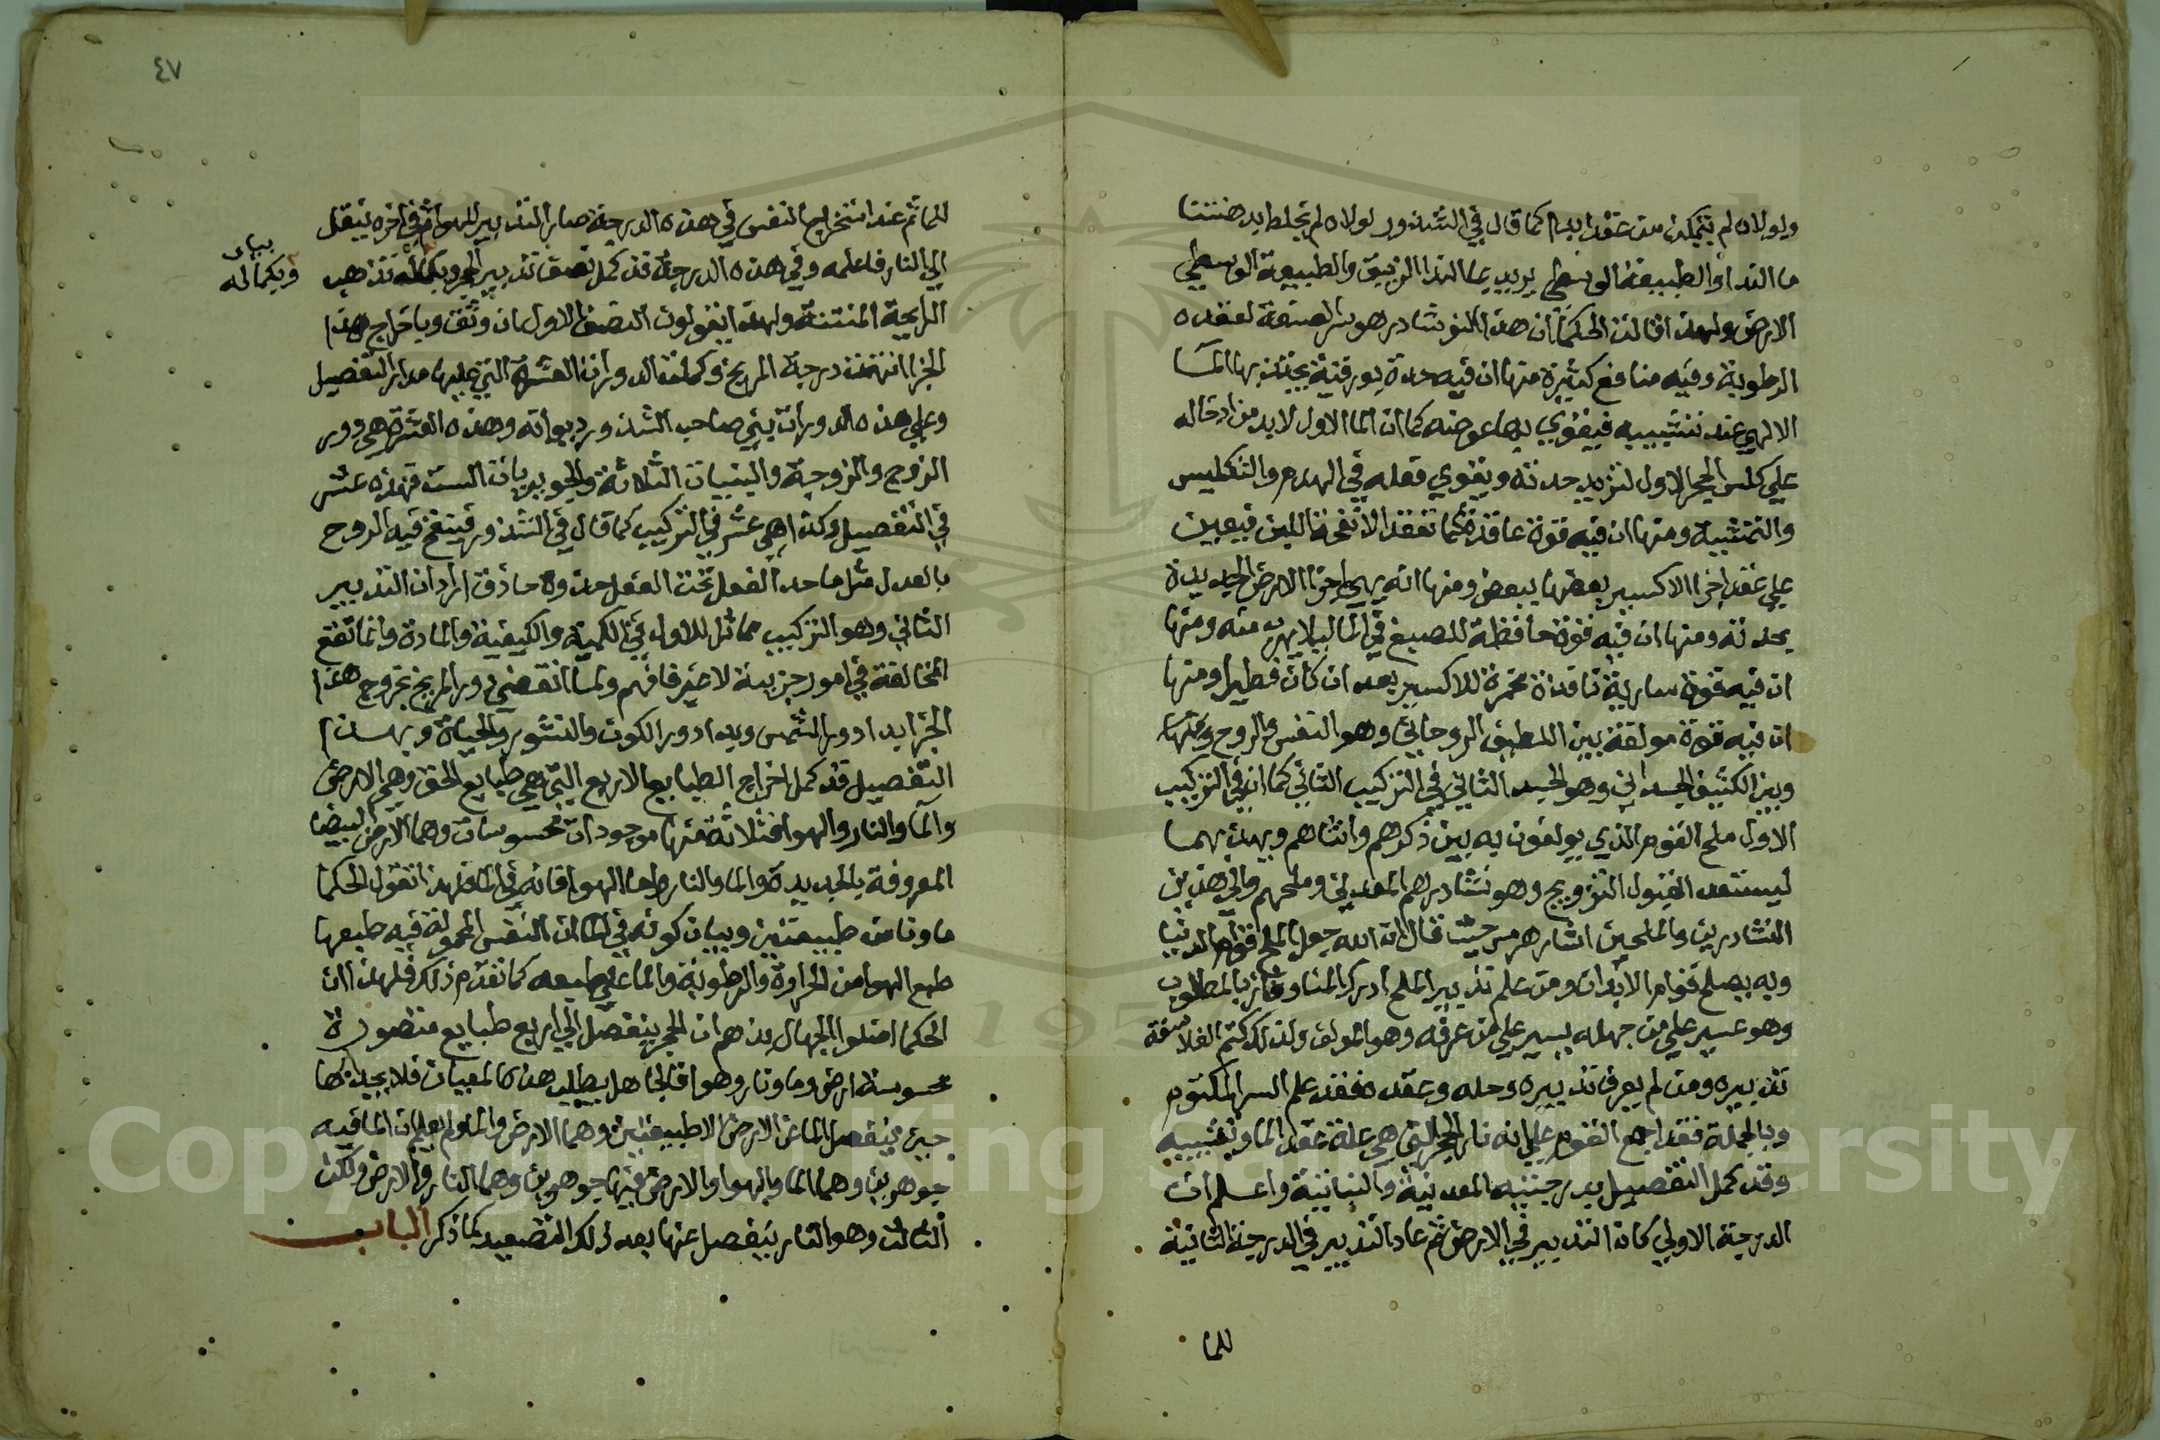 ولولاه لم يتمكن من عقد ابدا كما قال في الشذور ولولاه لم يخلط بدهنتنا
ما الندا والطبيعة الوسطي يريد بما الندا الزيبق والطبيعة الوسطي
الارض ولهذا قالت الحكما ان هذا النوشادر هو سر الصنعة لعقده
الرطوبة وفيه منافع كثيرة منها ان فيه حدة بورقية يجتذب بها الما
الالهي عند تشبيبه فيقوي بها عوضه كما ان الما الاول لابد من ادخاله
علي كلس الحجر الاول لتزيد حدته ويقوي فعله في الهدم والتكليس
والتمشية ومنها ان فيه قوة عاقدة كما تعقد الانفحة اللبن فيعين
علي عقد اجزا الاكسير بعضها ببعض ومنها انه يهي اجزا الارض الجديدة
بحدته ومنها ان فيه قوة حافظة للصبغ في الما ليلا يهرب منه ومنها
ان فيه قوة سارية نافذة مخمرة للاكسير بعد ان كان فطيرا ومنها
ان فيه قوة مولفة بين اللطيف الروحاني وهو النفس والروح
وبين الكثيف الجسداني وهو الجسد الثاني في التركيب الثاني كما ان في التركيب
الاول ملح القوم الذي يولفون به بين ذكرهم وانثاهم ويهذبهما
ليستعد القبول التزويج وهو نشادرهم المعدني وملحهم والي هذين
النشادرين والملحين اشار هرمس حيث قال ان الله جعل الملح قوام الدنيا
وبه يصلح قوام الابدان ومن علم تدبير الملح ادرك المنا وفاز بالمطلوب
وهو عسير علي من جهله يسير علي من عرفه وهو المولف ولذلك كتم الفلاسفة
تدبيره ومن لم يعرف تدبيره وحله وعقده فقد علم السر المكتوم
وبالجملة فقد اجمع القوم علي انه نار الحجر التي هي علة عقد الما وتشبيبه
وقد كمل التفصيل بدرجتيه المعدنية والنباتية واعلم ان
الدرجة الاولي كان التدبير في الارض ثم عاد التدبير في الدرجة الثانية
للما
٤٧
للما ثم عند استخراج النفس في هذه الدرجة صار التدبير للهوا ثم في اخره ينتقل
الي النار فاعلمه وفي هذه الدرجة قد كمل نصف تدبير الحجر وبكماله تذهب
بيان
وبكماله
الرايحة المنتنة ولهذا يقولون النصف الاول انوثة وباخراج هذا
الجزا انتهت درجة المريخ وكملت الدورات العشرة التي عليها مدار التفصيل
وعلي هذه الدورات بني صاحب الشذور ديوانه وهذه العشرة هي دور
الزوج والزوجة والبنيات الثلاثة والجويريات الست فهذه عشر
في التفصيل وكذا هي عشر في التركيب كما قال في الشذور فينفخ فيه الروح
بالعدل مثل ما حد الفعل تحت العقل حذوة حاذق اراد ان التدبير
الثاني وهو التركيب مماثل للاول في الكمية والكيفية والمادة وانما تقع
المخالفة في امور جزيية لا غير فافهم ولما انقضي دور المريخ بخروج هذا
الجز ابدا دور الشمس وبدا دور الكون والنشور والحياة وبهذا
التفصيل قد كمل اخراج الطبايع الاربع التي هي طبايع الحق وهم الارض
والما والنار والهوا فثلاثة منها موجودات محسوسات وهما الارض البيضا
المعروفة بالجديدة والما والنار واما الهوا فانه في الما فلهذا تقول الحكما
ماونا من طبيعتين وبيان كونه في الما ان النفس المحمولة فيه طبعها
طبع الهوا من الحرارة والرطوبة والما علي طبعه كما تقدم ذلك فلهذا ان
الحكما اضلوا الجهال بذهم ان الحجر ينفصل الي اربع طبايع منظورة
محسوسة ارض وما ونار وهوا فالجاهل يطلب هذا كالمعيبات فلا يجد كها
حين ينفصل الما عن الارض الا طبيعتين وهما الارض والما ولم يعلم ان الما فيه
جوهرين وهما الما والهوا والارض فيها جوهرين وهما النار والارض ولكن
الثالث وهو النار ينفصل عنها بعد ذلك التصعيد كما ذكر الباب
Copyright © King Saud University
195